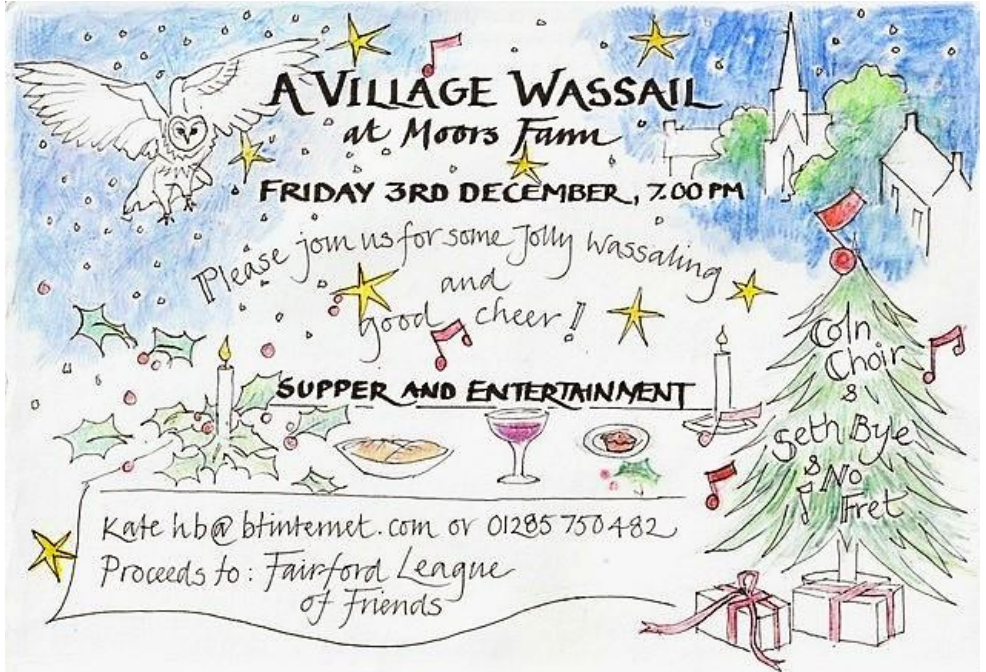 A VILLAGE WASSAIL
at Moors Farm
FRIDAY 3RD DECEMBER, 7.00 PM
Please join us for some Jolly Wassaling
and
good cheer!
SUPPER AND ENTERTAINMENT
Coln
Choir
&
Seth Bye
& No
Fret
Kate hb@btinternet.com or 01285 750482
Proceeds to: Fairford League
of Friends